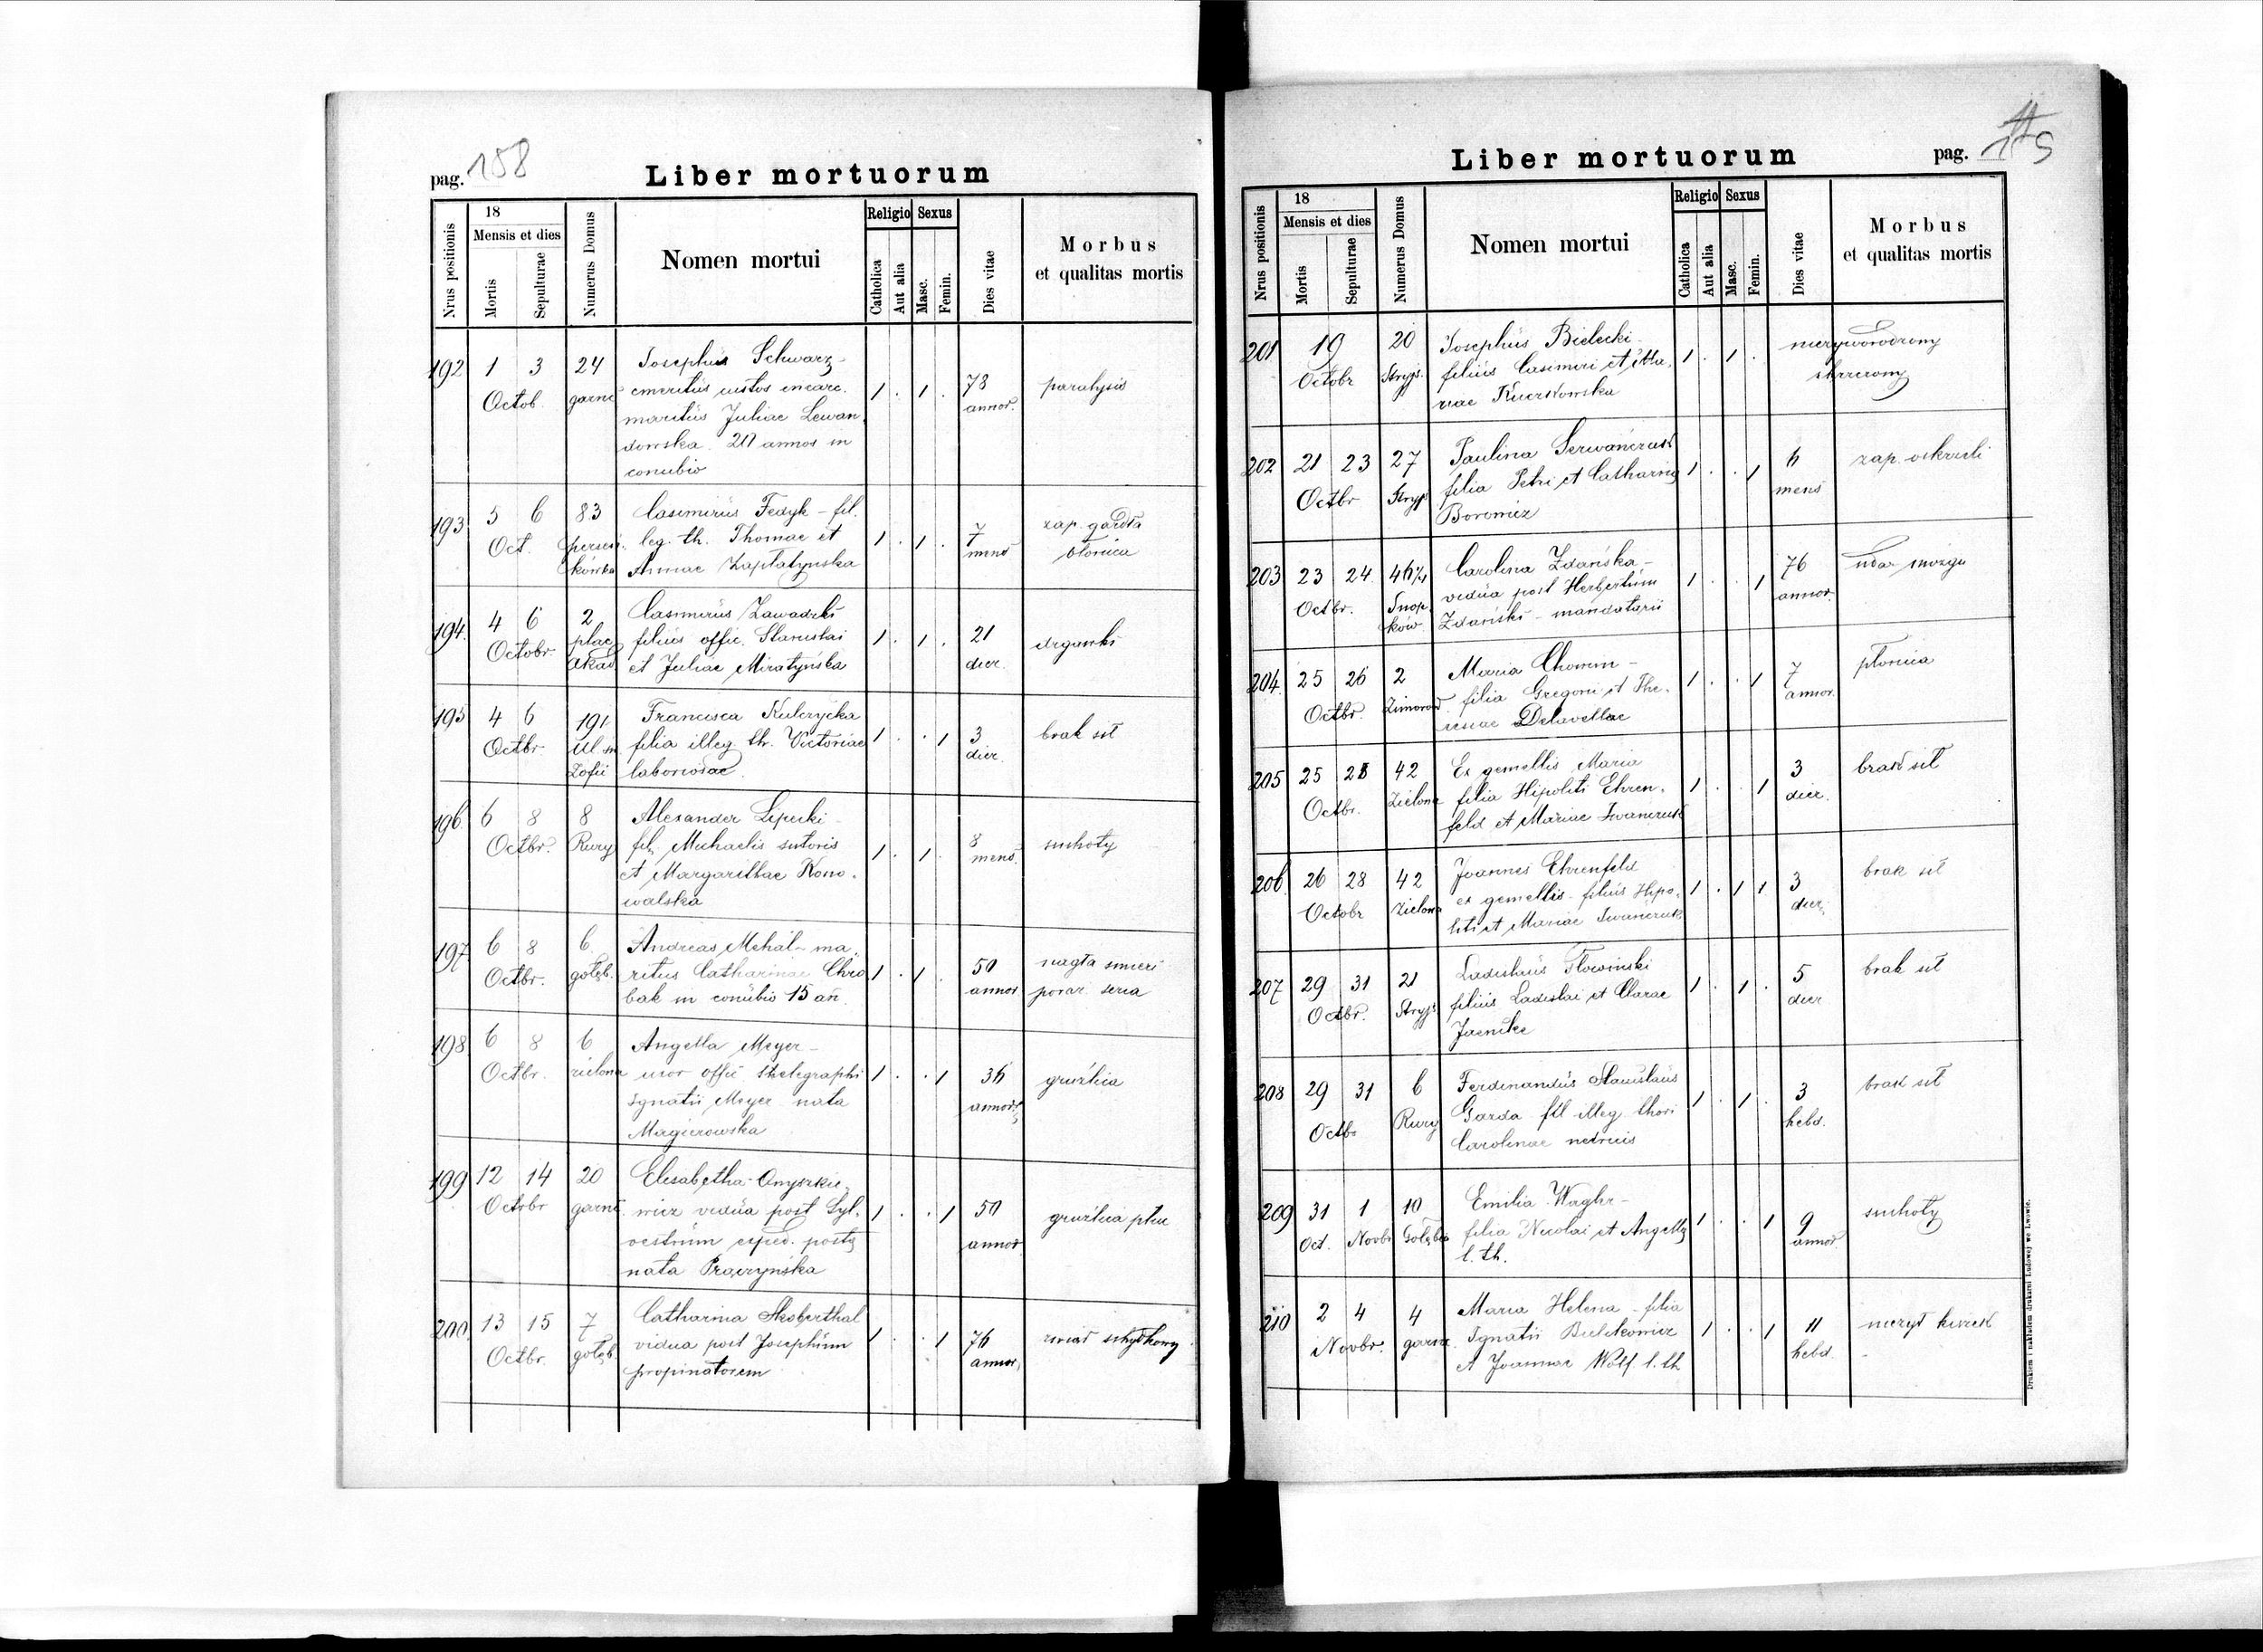 pag. 158
Liber mortuorum
Nrus positionis
18
Mensis et dies
Mortis
Sepulturae
Numerus Domus
Nomen mortui
Religio
Catholica
Aut alia
Sexus
Masc.
Femin.
Dies vitae
Morbus
et qualitas mortis
192 1 3 24 Josephus Schwarz
Octob. garnc emeritus custos incarc. 1 . 1 . 78 paralysis
maritus Juliae Lewan annor.
dowska. 20 annos in
conubio
193 5 6 83 Casimirus Fedyk – fil.
Oct. persen leg. th. Thomae et 1 . 1 . 7 zap. gardła
kówka Annae Zapłatynska mens błonica
194. 4 6 2 Casimirus Zawadzki
Octobr. plac filius offic. Stanislai 1 . 1 . 21 drgawki
Akad et Juliae Miratyńska dier.
195 4 6 191 Francisca Kulczycka
Octbr. Ul. sw filia illeg. th. Victoriae 1 . . 1 3 brak sił
Zofii laboriosae dier.
196. 6 8 8 Alexander Lipecki
Octbr. Rury fil. Michaelis sutoris 1 . 1 . 8 suchoty
et Margarithae Kono- mens.
walska
197 6 8 6 Andreas Mehal – ma-
Octbr. gołęb. ritus Catharinae Chro 1 . 1 . 50 nagła smierć
bak in conubio 15 an. annor poraż. serca
198 6 8 6 Angella Meyer –
Octbr. zielona uxor offic. thelegraphi 1 . . 1 36 gruźlica
Ignatii Meyer nata annor.
Magierowska
199 12 14 20 Elisabetha Onyszkie-
Octobr garnc. wicz vidua post Syl- 1 . . 1 50 gruźlica płuc
vestrum exped. posty annor
nata Prączyńska
200 13 15 7 Catharina Skoberthal
Octbr. gołęb. vidua post Josephum 1 . . 1 76 uwiąd schyłkowy
propinatorem annor.
Liber mortuorum
pag.
Nrus positionis
18
Mensis et dies
Mortis
Sepulturae
Numerus Domus
Nomen mortui
Religio
Catholica
Aut alia
Sexus
Masc.
Femin.
Dies vitae
Morbus
et qualitas mortis
201 19 20 Josephus Bielecki
Octobr Stryjs. filius Casimiri et Ma- 1 . 1 . nieżyworodzony
riae Kuczkowska
202 21 23 27 Paulina Serwańczuk
Octbr Stryjs filia Petri et Catharinę 1 . . 1 6 zap. oskrzeli
Borowicz mens
203 23 24 46¼ Carolina Zdańska – 76 udar mózgu
Octbr. Snop vidua post Herbertum 1 . . 1 annor.
ków Zdański – mandatarii
204. 25 26 2 Maria Chomin –
Octbr. Zimorow filia Gregorii et The- 1 . . 1 7 płonica
resiae Delavellae annor.
205 25 28 42 Ex gemellis Maria
Octbr. Zielona filia Hipoliti Ehren- 1 . . 1 3 brak sił
feld et Mariae Iwanczuk dier.
206. 26 28 42 Joannes Ehrenfeld
Octobr Zielona ex gemellis filius Hipo- 1 . 1 1 3 brak sił
liti et Mariae Iwanczuk dier.
207 29 31 21 Ladislaus Słowinski
Octbr. Stryjs filius Ladislai et Clarae 1 . 1 . 5 brak sił
Jaenike dier
208 29 31 6 Ferdinandus Stanislaus
Octb Rury Garda fil illeg. thori 1 . 1 . 3 brak sił
Carolinae nutricis hebd.
209 31 1 10 Emilia Waghr –
Oct. Novbr Gołębia filia Nicolai et Angellę 1 . . 1 9 suchoty
l. th. annor.
210 2 4 4 Maria Helena – filia
Novbr. garnc. Ignatii Bulikowicz 1 . . 1 11 nieżyt kiszek
et Joannae Wolf l. th. hebd.
Drukiem i nakładem drukarni Ludowej we Lwowie.